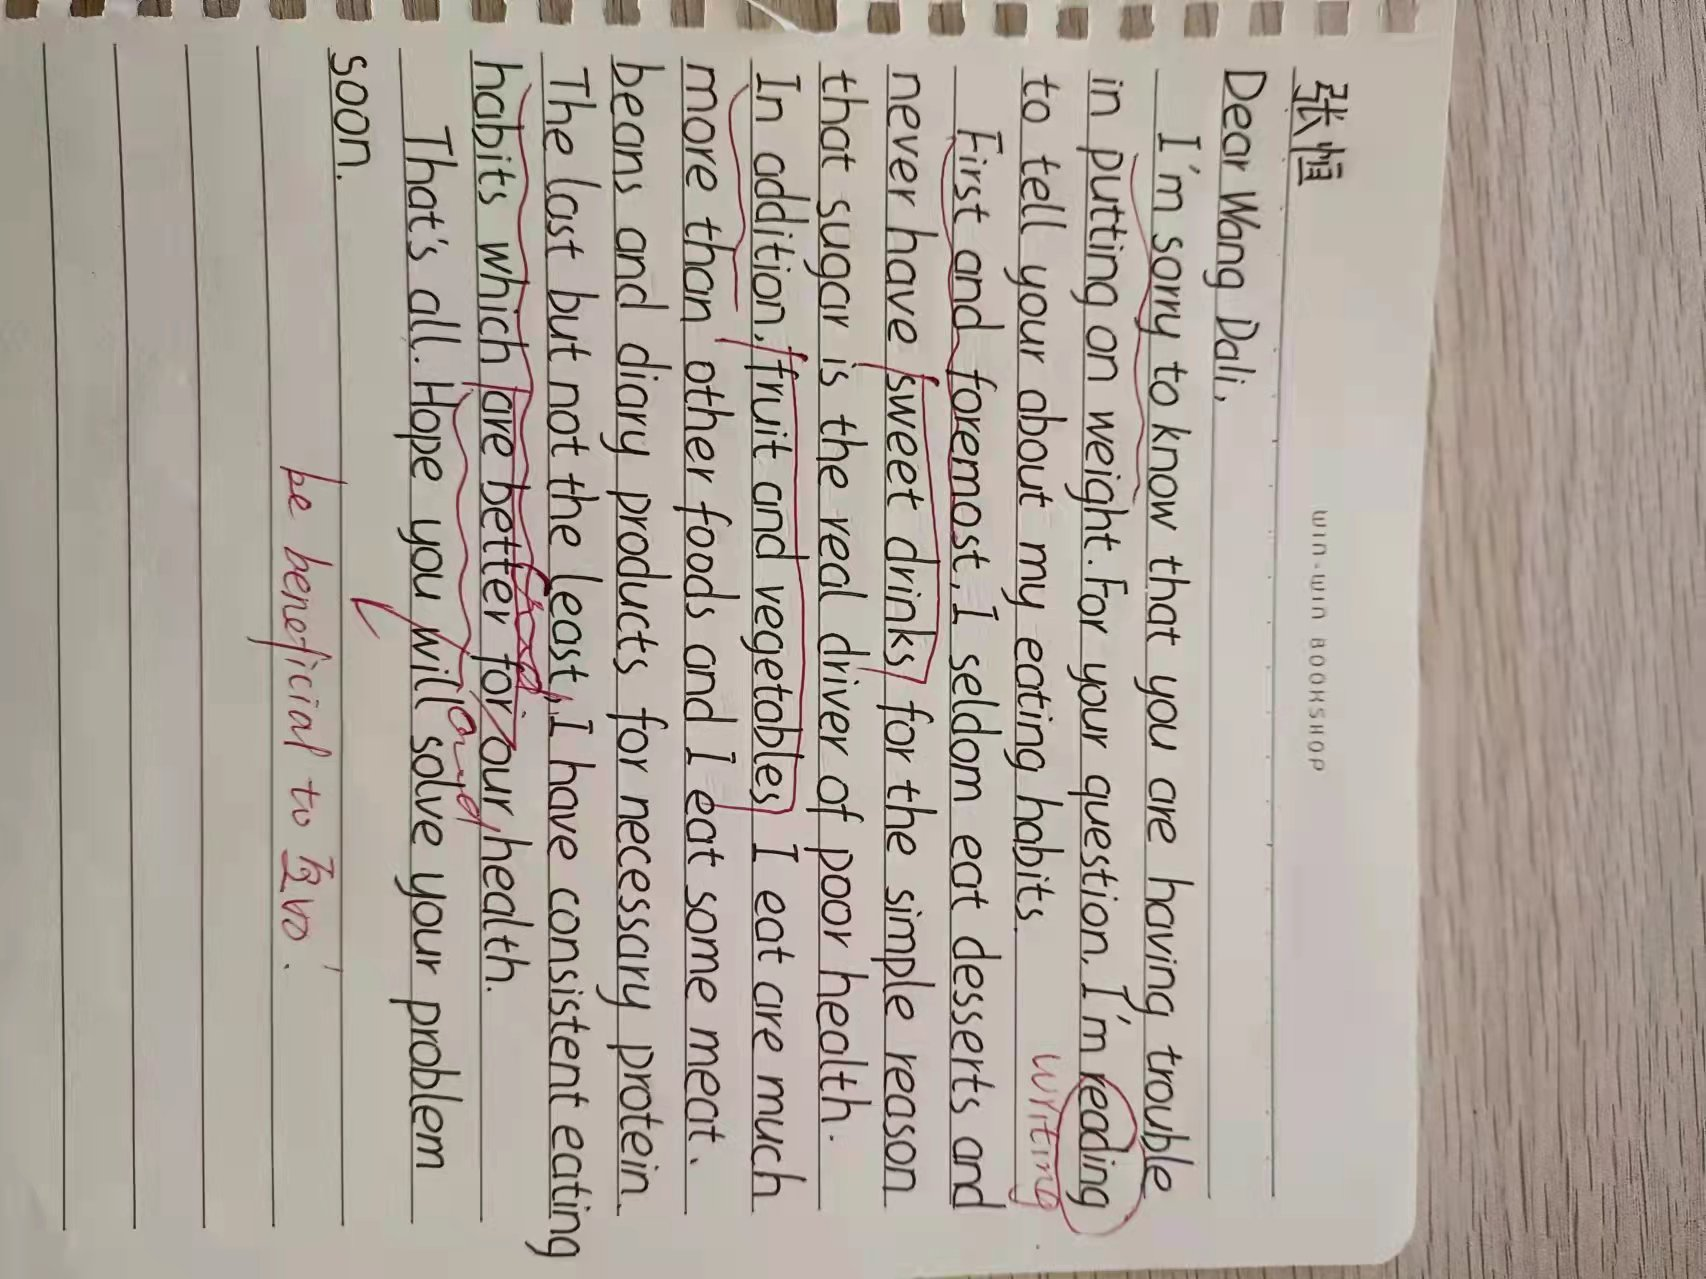 WIN-WIN BOOKSHOP
张恒
Dear Wang Dali,
I'm sorry to know that you are having trouble
in putting on weight. For your question, I'm reading
writing
to tell your about my eating habits.
First and foremost, I seldom eat desserts and
never have sweet drinks for the simple reason
that sugar is the real driver of poor health.
In addition, fruit and vegetables I eat are much
more than other foods and I eat some meat.
beans and diary products for necessary protein.
The last but not the least, I have consistent eating
habits which are better for our health.
and
That's all. Hope you will solve your problem
soon.
be beneficial to